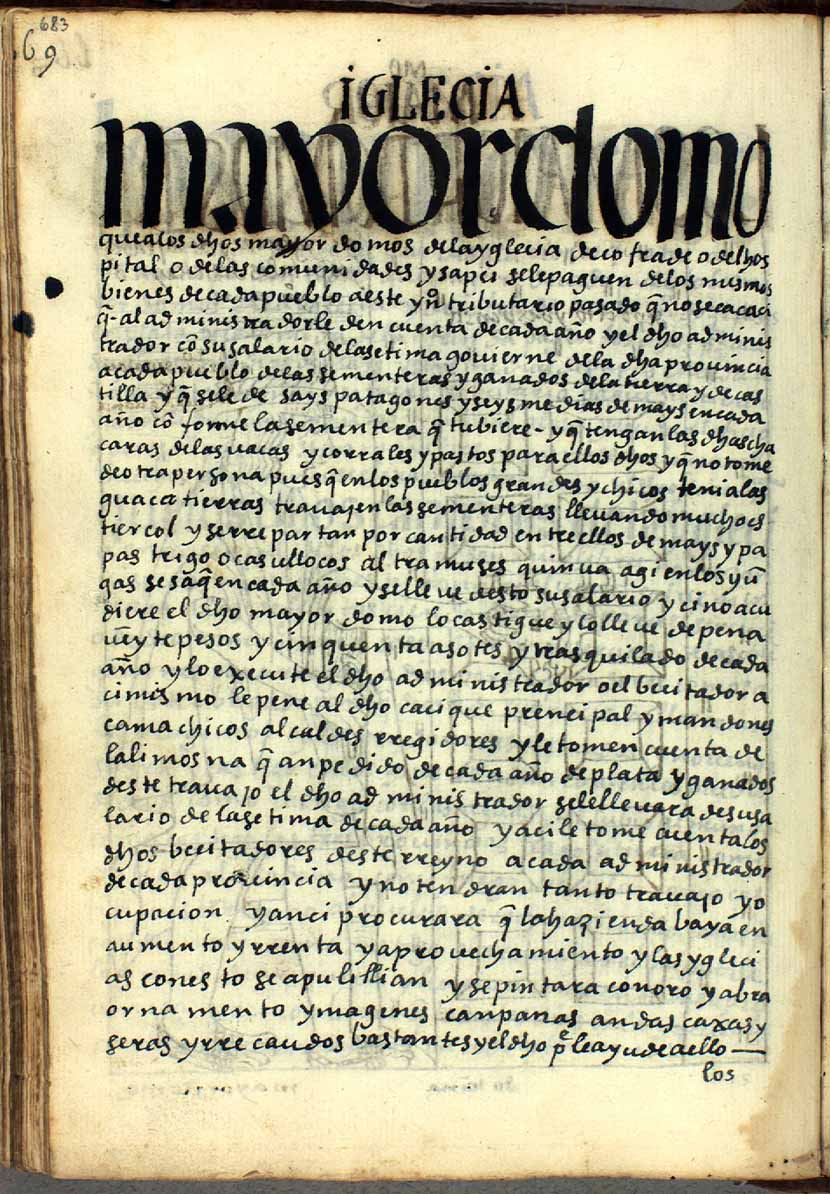 683
69
iGLECIA
mayordomo
que a los dhos mayordomos de la yglecia de cofrade o del hos
pital o de las comunidades y sapci se le paguen de los mismos
bienes de cada pueblo a este yn̄ tributario pasado q̄ no se ca caci
q̄ - al administrador le den cuenta de cada año y el dho adminis
trador cō su salario de la setima govierne de la dha provincia
a cada pueblo de las sementeras y ganados de la tierra y de cas
tilla y q̄ se le de says patagones y seys medias de mays en cada
año cō forme la sementera q̄ tubiere - y q̄ tengan las dhas cha
caras de las vacas y corrales y pastos para ellos dhos y q̄ no tome
de otra persona pues q̄ en los pueblos grandes y chicos tenia las
guaca tierras travajen las sementeras llevando mucho es
tiercol y se rrepartan por cantidad entre ellos de mays y pa
pas trigo o cas ullocos altramuses quinua agi en los yun
gas se saq̄ en cada año y se lleve desto su salario y ci no acu
diere el dho mayordomo lo castigue y lo lleve de pena
veyte pesos y cinquenta asotes y trasquilado de cada
año y lo execute el dho administrador o el becitador a
cimismo le pene al dho cacique prencipal y mandones
camachicos alcaldes rregidores y le tomen cuenta de
la limosna q̄ an pedido de cada año de plata y ganados
deste travajo el dho administrador se le llevara de su sa
lario de la setima de cada año y aci le tome cuenta los
dhos becitadores deste rreyno a cada administrador
de cada provincia y no tendran tanto travajo y o
cupacion y anci procurara q̄ la hazienda baya en
aumento y rrenta y aprovechamiento y las ygleci
as con esto se apulillian y se pintara con oro y abra
ornamento y magenes canpanas andas caxas y
seras y rrecaudos bastantes y el dho pe le ayude a ello —
los